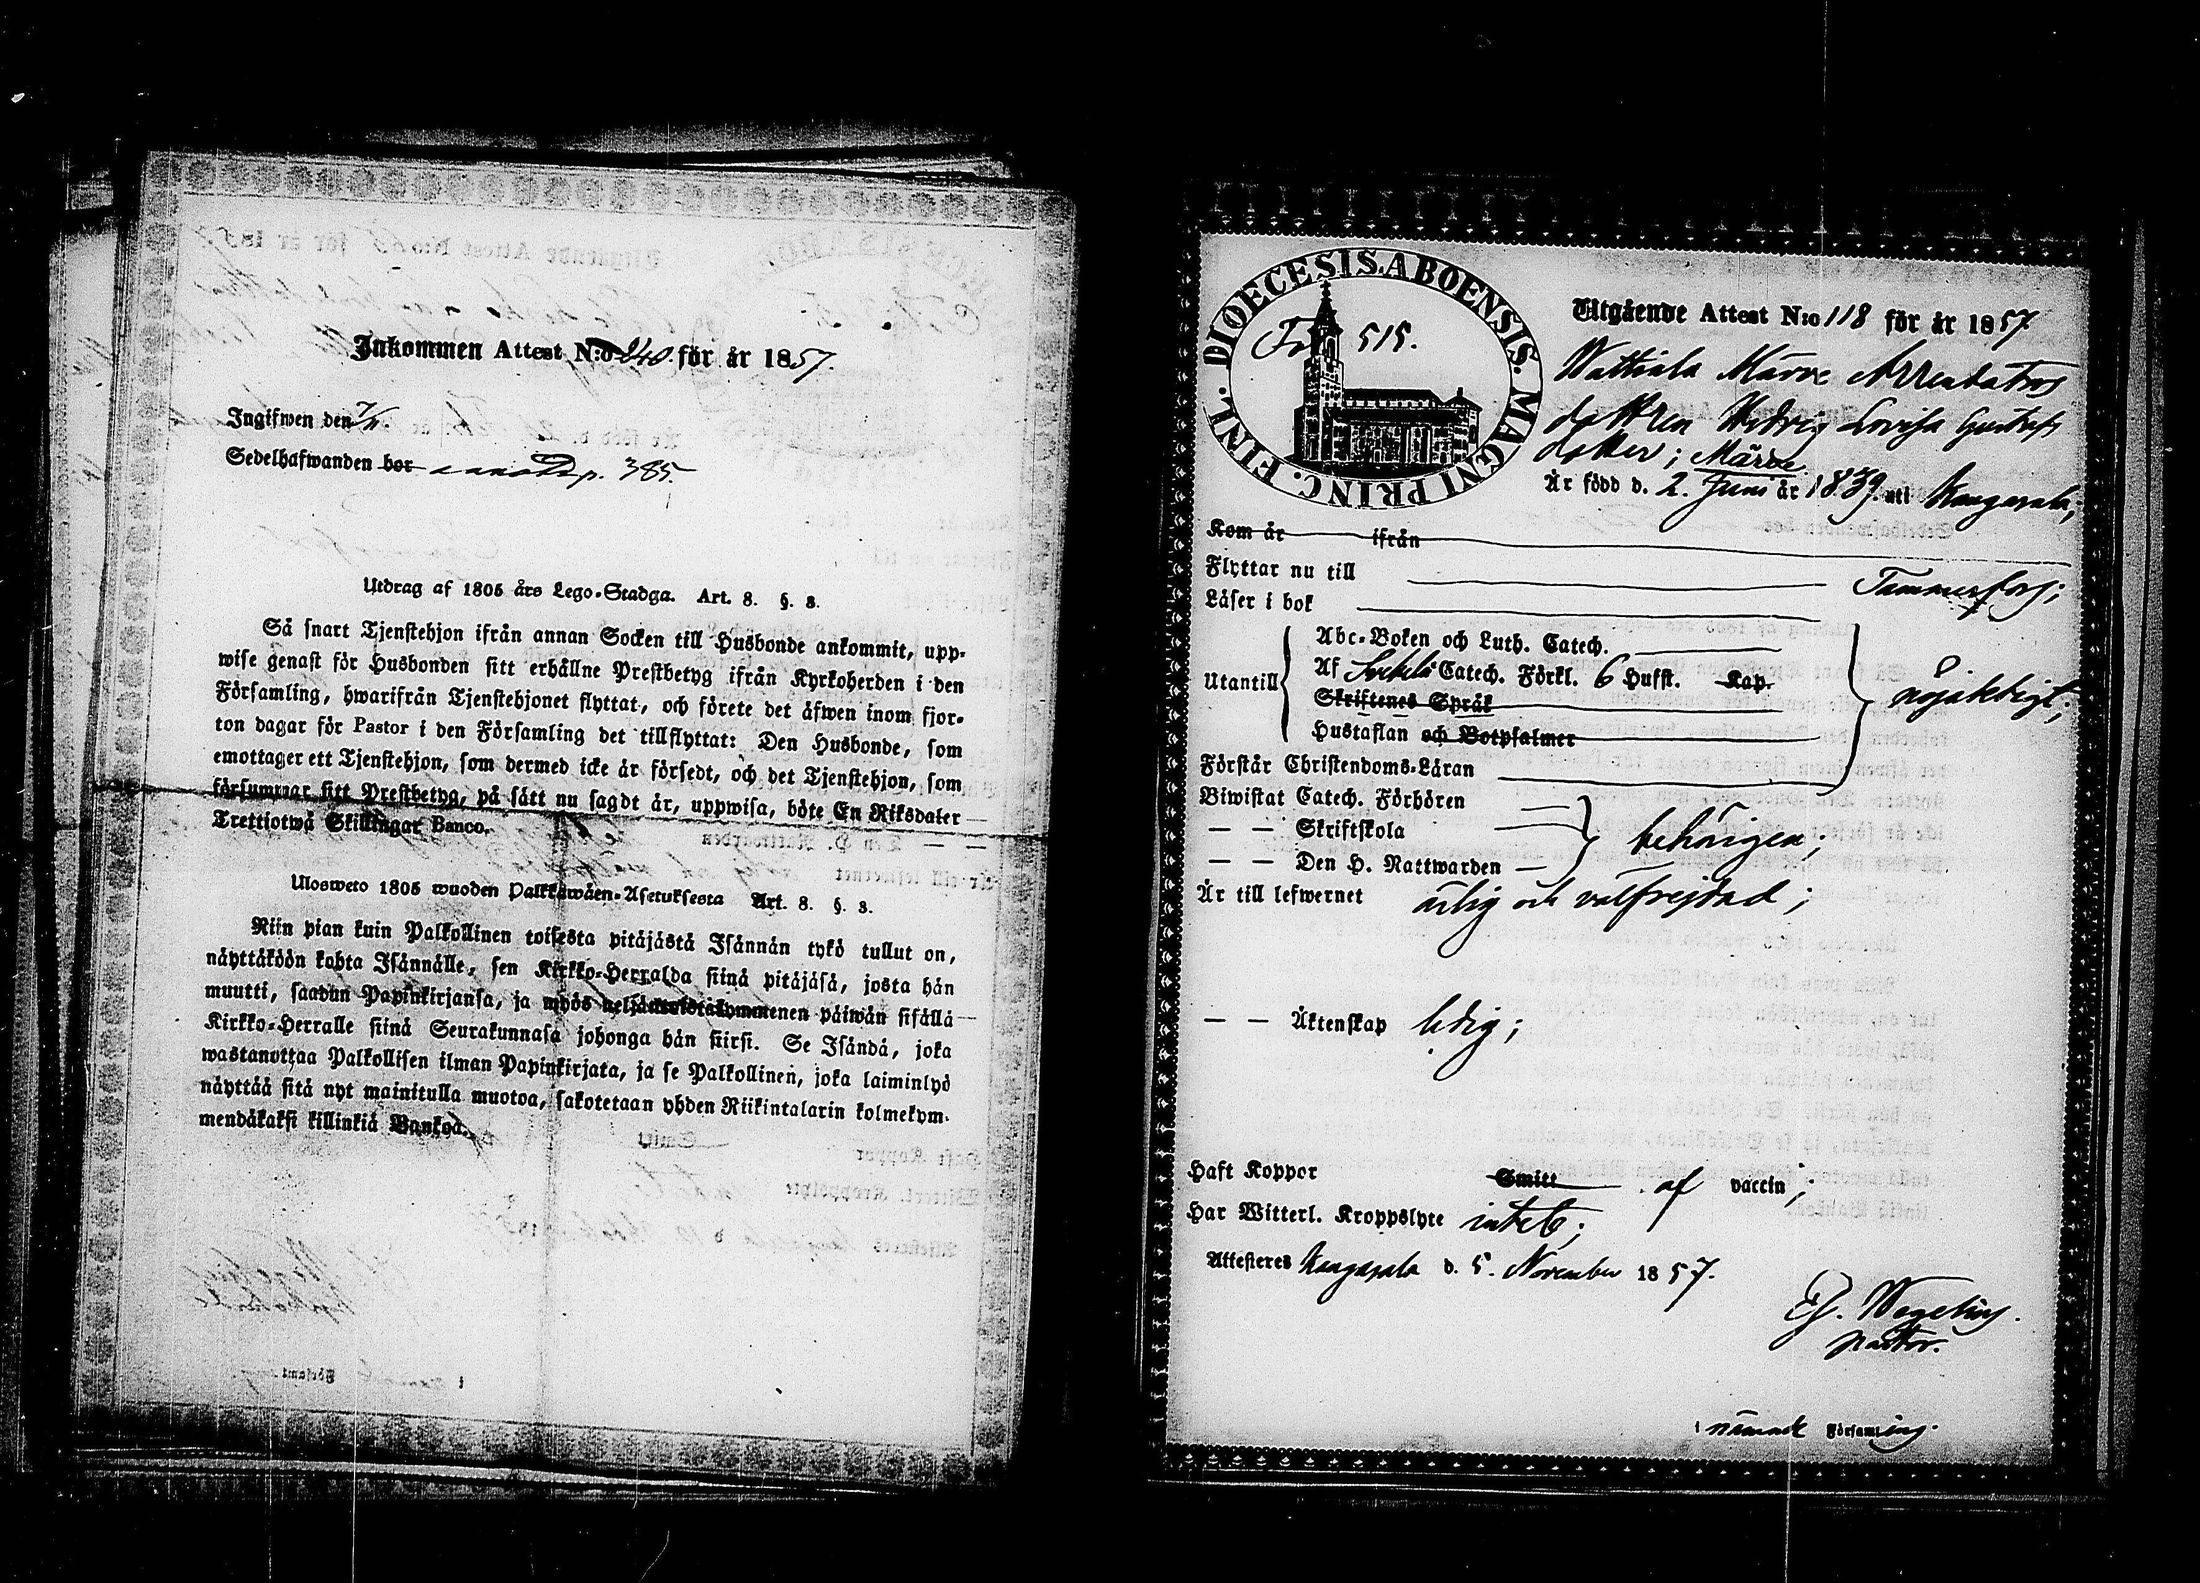 Inkommen Attest N:o 240. för år 1857.
Ingifwen den 7/11.
Sedelhafwanden bor annoth p. 385.
Utdrag af 1805 års Lego-Stadga. Art. 8. §. 3.
Så snart Tjenstehjon ifrån annan Socken till Husbonde ankommit, upp-
wise genast för Husbonden sitt erhållne Prestbetyg ifrån Kyrkoherden i den
Församling, hwarifrån Tjenstehjonet flyttat, och förete det äfwen inom fjor-
ton dagar för Pastor i den Församling det tillflyttat: Den Husbonde, som
emottager ett Tjenstehjon, som dermed icke är försedt, och det Tjenstehjon, som
försummar sitt Prestbetyg, på sätt nu sagdt är, uppwisa, böte En Riksdaler
Trettiotwå Skillingar Banco.
Ulosweto 1805 wuoden Palkkawäen-Asetuksesta Art. 8. §. 3.
Niin pian kuin Palkollinen toisesta pitäjästä Isännän tykö tullut on,
näyttäköön kohta Isännälle, sen Kirkko-Herralda siinä pitäjäsä, josta hän
muutti, saadun Papinkirjansa, ja myös neljäntoistakymmenen päiwän sisällä
Kirkko-Herralle siinä Seurakunnasa johonga hän siirsi. Se Isändä, joka
wastanottaa Palkollisen ilman Papinkirjata, ja se Palkollinen, joka laiminlyö
näyttää sitä nyt mainitulla muotoa, sakotetaan yhden Riikintalarin kolmekym-
mendäkaksi killinkiä Bankoa.
DIOECESIS. ABOENSIS. MAGNI PRINC. FINL.
Fol 515.
Utgående Attest N:o 118 för år 1857
Wattiala Märve Arrendators
dottren Hedrig Lovisa Gustafs
dotter; Märve
Är född d. 2. Juni år 1839. uti Kangasala;
Kom år ifrån
Flyttar nu till Tammerfors;
Läser i bok
Utantill
Abc-Boken och Luth. Catech.
Af Svebeli Catech. Förkl. 6 Hufst. Kap.
Skriftenes Språk
Hustaflan och Botpsalmer
nöjaktigt;
Förstår Christendoms-Läran
Biwistat Catech. Förhören
— — Skriftskola
— — Den H. Nattwarden
behörigen;
Är till lefwernet ärlig och välfrejdad;
— — Äktenskap ledig;
Haft Koppor Smitt af vaccin;
Har Witterl. Kroppslyte intet;
Attesteres Kangasala d. 5. November 1857.
Wegelius.
Pastor.
i nämnde Församling.